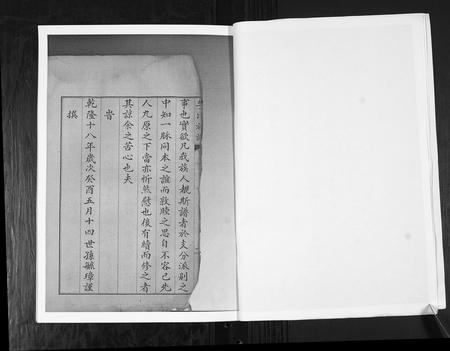 事也實欲凡我族人覩斯譜者於支分派別之
中知一脉同本之誼而敦睦之思自不容已先
人九原之下當亦忻然慰也後有續而修之者
其諒余之苦心也夫
旹
乾隆十八年歲次癸酉五月十四世孫毓璋謹
撰